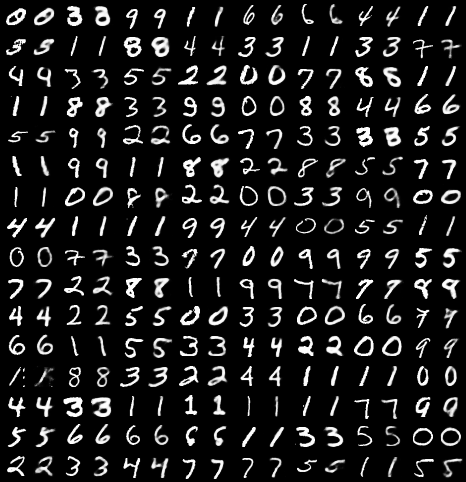 0 0 3 3 9 9 1 1 6 6 6 6 4 4 1 1
5 5 1 1 8 8 4 4 3 3 1 1 3 3 7 7
9 9 3 3 5 5 2 2 0 0 7 7 8 8 1 1
1 1 8 8 3 3 9 9 0 0 8 8 4 4 6 6
5 5 9 9 2 2 6 6 7 7 3 3 3 3 5 5
1 1 9 9 1 1 8 8 2 2 8 8 5 5 7 7
1 1 0 0 8 8 2 2 0 0 3 3 9 9 0 0
4 4 1 1 1 1 9 9 4 4 0 0 5 5 1 1
0 0 7 7 3 3 7 7 0 0 9 9 9 9 5 5
7 7 2 2 8 8 1 1 9 9 7 7 7 7 9 9
4 4 2 2 5 5 0 0 3 3 0 0 6 6 7 7
6 6 1 1 5 5 3 3 4 4 2 2 0 0 9 9
1 8 8 3 3 2 2 4 4 1 1 1 1 0 0
4 4 3 3 1 1 1 1 1 1 1 1 7 7 9 9
5 5 6 6 6 6 6 6 1 1 3 3 5 5 0 0
2 2 3 3 4 4 7 7 7 7 5 5 1 1 5 5